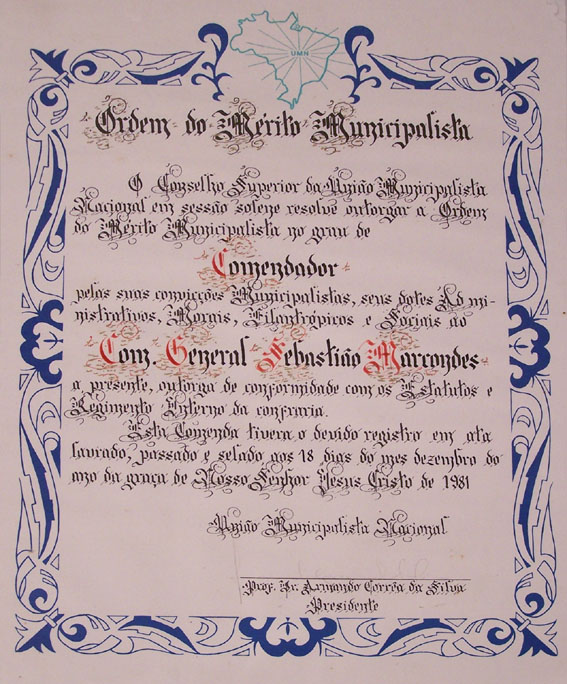 UMN
Ordem do Mérito Municipalista
O Conselho Superior da União Municipalista
Nacional em sessão solene resolve outorgar a Ordem
do Mérito Municipalista no grau de
Comendador
pelas suas convicções Municipalistas, seus dotes Admi-
nistrativos, Morais, Filantrópicos e Sociais ao
Com. General Sebastião Marcondes
a presente, outorga de conformidade com os Estatutos e
Regimento Interno da confraria.
Esta Comenda tivera o devido registro em ata
lavrado, passado e selado aos 18 dias do mes dezembro do
ano da graça de Nosso Senhor Jesus Cristo de 1981
União Municipalista Nacional
Prof. Dr. Armando Corrêa da Silva
Presidente